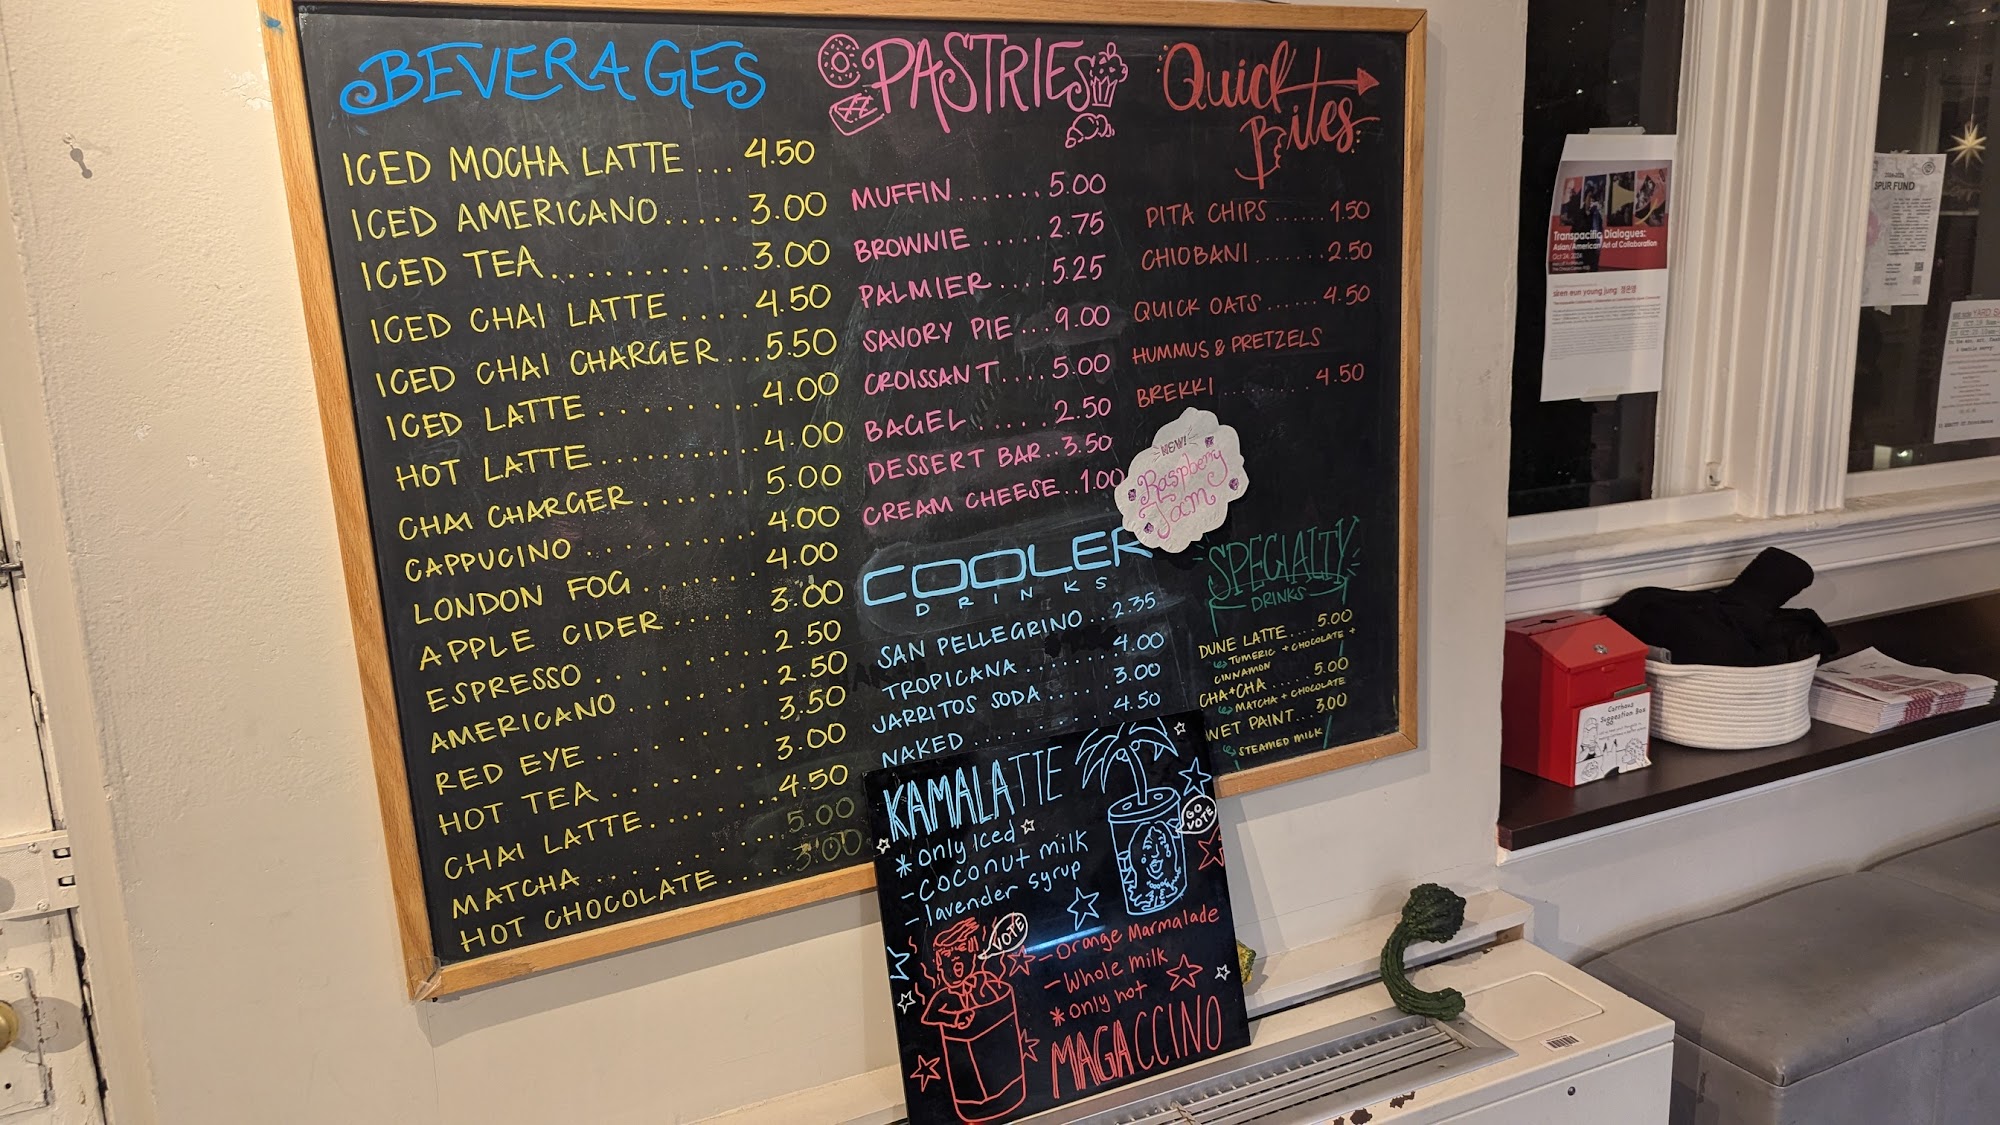 BEVERAGES
ICED MOCHA LATTE ... 4.50
ICED AMERICANO ..... 3.00
ICED TEA .......... 3.00
ICED CHAI LATTE .... 4.50
ICED CHAI CHARGER ... 5.50
ICED LATTE ........ 4.00
HOT LATTE .......... 4.00
CHAI CHARGER ....... 5.00
CAPPUCINO .......... 4.00
LONDON FOG ....... 4.00
APPLE CIDER .... 3.00
ESPRESSO ........ 2.50
AMERICANO ....... 2.50
RED EYE ......... 3.50
HOT TEA ......... 3.00
CHAI LATTE ....... 4.50
MATCHA ......... 5.00
HOT CHOCOLATE .... 3.00
PASTRIES
MUFFIN ....... 5.00
BROWNIE ..... 2.75
PALMIER .... 5.25
SAVORY PIE ... 9.00
CROISSANT .... 5.00
BAGEL ..... 2.50
DESSERT BAR .. 3.50
CREAM CHEESE .. 1.00
COOLER
DRINKS
SAN PELLEGRINO .. 2.35
TROPICANA ....... 4.00
JARRITOS SODA ..... 3.00
NAKED ......... 4.50
Quick
Bites
PITA CHIPS ...... 1.50
CHIOBANI ....... 2.50
QUICK OATS ...... 4.50
HUMMUS & PRETZELS
BREKKI ........ 4.50
NEW!
Raspberry
Jam
SPECIALTY
DRINKS
DUNE LATTE .... 5.00
TUMERIC + CHOCOLATE +
CINNAMON
CHA+CHA ..... 5.00
MATCHA + CHOCOLATE
WET PAINT ... 3.00
STEAMED MILK
KAMALATTE
*only iced
- coconut milk
- lavender syrup
GO
VOTE
VOTE
- Orange Marmalade
- Whole milk
*only hot
MAGACCINO
Transpacific Dialogues:
Asian/American Art of Collaboration
Oct 24, 2024
siren eun young jung 정은영
SPUR FUND
YARD SA
Carrhaus
Suggestion Box